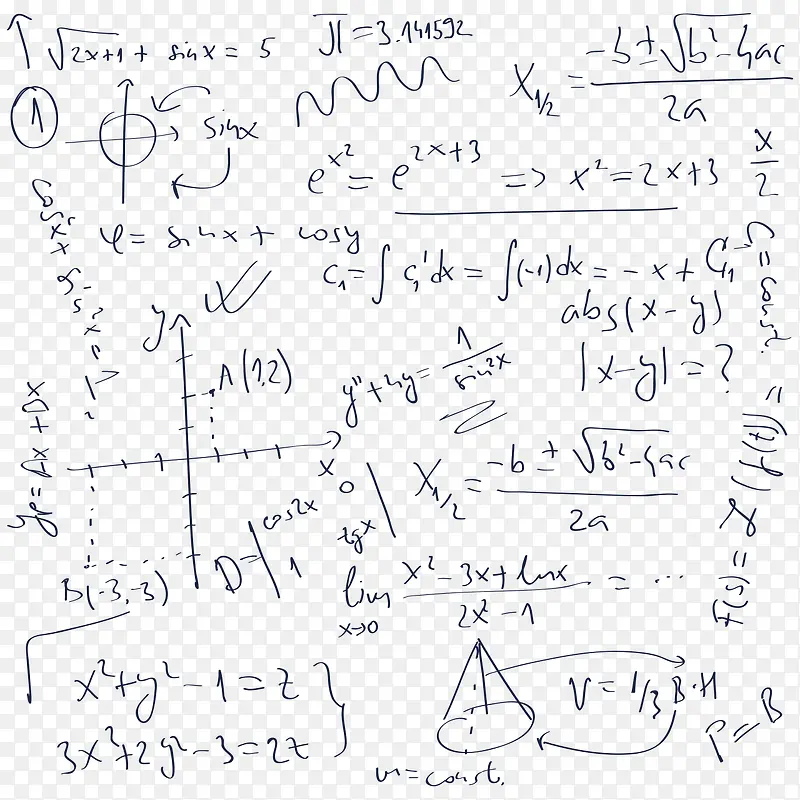 √2x+1 + sinx = 5
π = 3.141592
X₁/₂ = (-b ± √b²-4ac) / 2a
1
sinx
e^x² = e^2x+3 => x² = 2x+3
x/2
φ = sinx + cosy
C₁ = ∫ C₁' dx = ∫(-1)dx = -x + C₁
C = const.
abs(x-y)
|x-y| = ?
y
A(1,2)
y'' + 4y = 1 / sin²x
x
X₁/₂ = (-b ± √b²-4ac) / 2a
D = | cos2x 0
1 tgx |
B(-3,-3)
lim x→0 (x² - 3x + lnx) / (2x² - 1) = ...
x² + y² - 1 = z }
3x² + 2y² - 3 = 2z
V = 1/3 B·H
P = B
m = const.